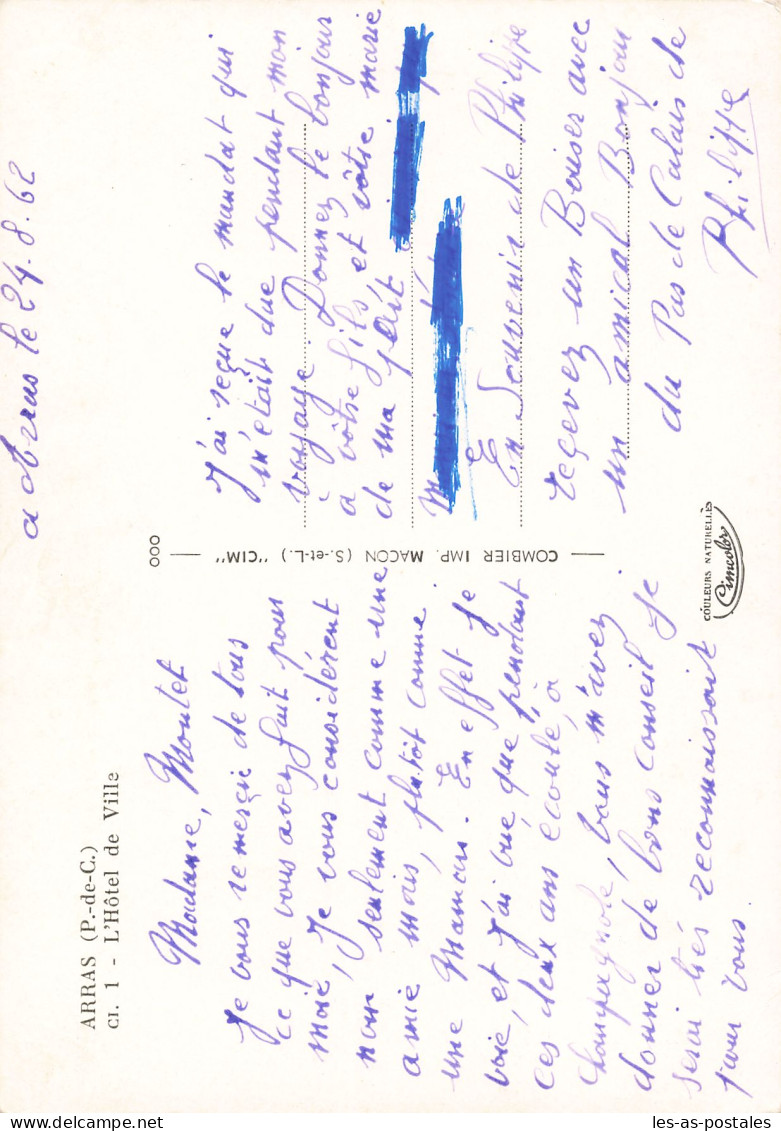 ARRAS (P.-de-C.)
CI. 1 - L'Hôtel de Ville
a Arras le 24.8.62
Madame, Moutet
Je vous remerçie de tous
ce que vous avez fait pour
moi, Je vous considérent
non seulement comme une
amie mais, plutôt comme
une Maman. En effet je
voie, et j'ai vue, que pendant
ces deux ans ecoulé, à
Champagnole, Vous m'avez
donner de bons conseil Je
serai très reconnaissait
pour vous.
J'ai reçue le mandat qui
m'était due pendant mon
voyage. Donnez le bonjour
à vôtre fils, et vôtre marie
de ma part
En Souvenir de Philippe
reçevez un Baiser avec
un amical Bonjour
du Pas de Calais de
Philippe
COMBIER IMP. MACON (S.-et-L.) "CIM"
000
COULEURS NATURELLES
Cimcolor
les-as-postales